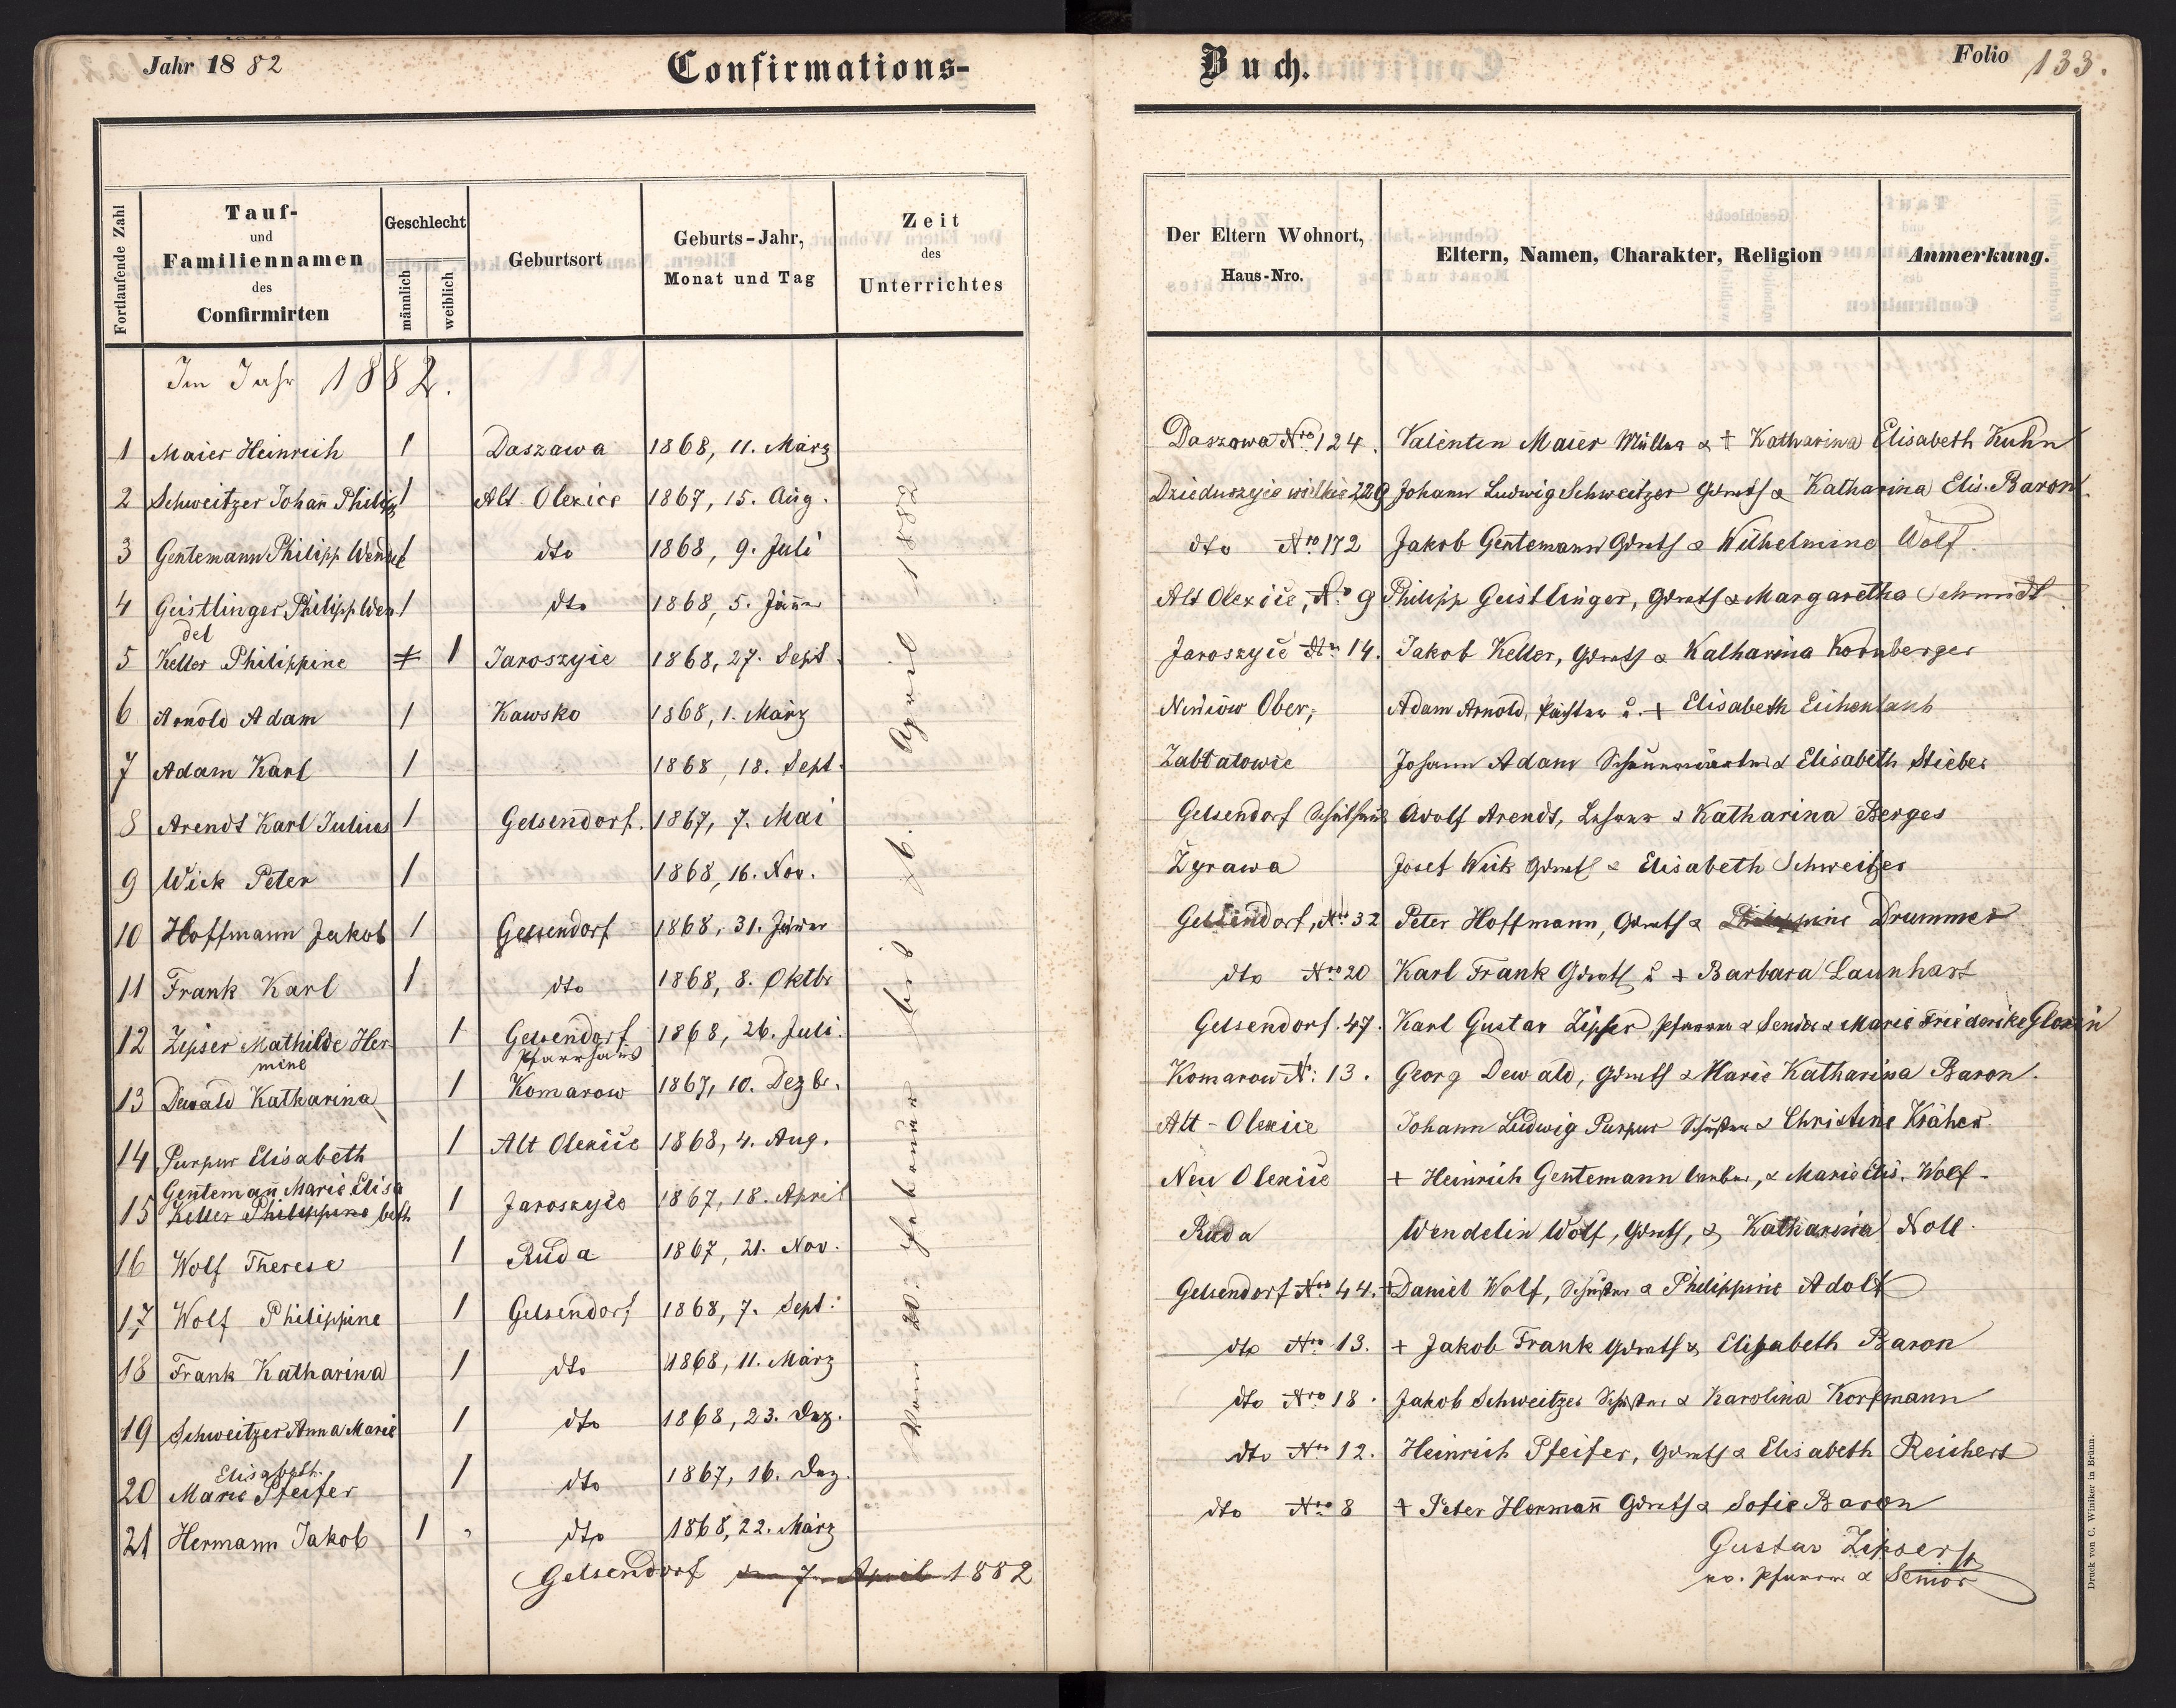 Jahr 1882
Confirmations-
Buch.
Folio 133.
Fortlaufende Zahl
Tauf-
und
Familiennamen
des
Confirmirten
Geschlecht
männlich
weiblich
Geburtsort
Geburts-Jahr,
Monat und Tag
Zeit
des
Unterrichtes
Der Eltern Wohnort,
Haus-Nro.
Eltern, Namen, Charakter, Religion
Anmerkung.
Im Jahr 1882.
1 Maier Heinrich 1 Daszawa 1868, 11. März Daszowa Nro 124. Valentin Maier Müller & † Katharina Elisabeth Kuhn
2 Schweitzer Johañ Philipp 1 Alt Olexice 1867, 15. Aug. Dzieduszyie wielkie 229 Johann Ludwig Schweitzer Grundb & Katharina Elis. Baron
3 Gentemann Philipp Wendel 1 dto 1868, 9. Juli dto Nro 172 Jakob Gentemann Grundb & Wilhelmine Wolf
4 Geistlinger Philipp Wen 1 dto 1868, 5. Jänner Alt Olexice, No 9 Philipp Geistlinger, Grundb & Margaretha Schmidt
del
5 Keller Philippine 1 1 Jaroszyie 1868, 27. Sept. Jaroszyie Nro 14. Jakob Keller, Grundb & Katharina Kornberger
6 Arnold Adam 1 Kawsko 1868, 1. März Niniow Ober, Adam Arnold, Pächter u. † Elisabeth Eichenlaub
7 Adam Karl 1 1868, 18. Sept. Zablatowie Johann Adam & Elisabeth Stieber
8 Arendt Karl Julius 1 Gelsendorf. 1867, 7. Mai Gelsendorf Schulhaus Adolf Arendt, Lehrer & Katharina Berges
9 Wick Peter 1 1868, 16. Nov. Zyrawa Josef Wick Grundb & Elisabeth Schweitzer
10 Hoffmann Jakob 1 Gelsendorf 1868, 31. Jänner Gelsendorf, Nro 32 Peter Hoffmann, Grundb & Philippine Drummer
11 Frank Karl 1 dto 1868, 8. Oktbr dto Nro 20 Karl Frank Grundb u † Barbara Launhart
12 Zipser Mathilde Her 1 Gelsendorf 1868, 26. Juli. Gelsendorf. 47. Karl Gustav Zipser, Pfarrer & Senior & Marie Friederike Glozin
mine Pfarrhaus
13 Dewald Katharina 1 Komarow 1867, 10. Dezbr. Komarow N: 13. Georg Dewald, Grundb & Marie Katharina Baron.
14 Purpur Elisabeth 1 Alt Olexiie 1868, 4. Aug. Alt-Olexiie Johann Ludwig Purpur Schuster & Christine Kräher
Gentemañ Marie Elisa
15 Keller Philippine beth 1 Jaroszyie 1867, 18. April Neu Olexiie + Heinrich Gentemann & Marie Elis. Wolf-
16 Wolf Therese 1 Ruda 1867, 21. Nov. Ruda Wendelin Wolf, Grundb, & Katharina Noll
17 Wolf Philippine 1 Gelsendorf 1868, 7. Sept. Gelsendorf Nro 44. + Daniel Wolf, Schuster & Philippine Adolf
18 Frank Katharina 1 dto 1868, 11. März dto Nro 13. + Jakob Frank Grundb & Elisabeth Baron
19 Schweitzer Anna Marie 1 dto 1868, 23. Dez. dto Nro 18. Jakob Schweitzer Schuster & Karolina Korfmann
Elisabeth.
20 Marie Pfeifer 1 dto 1867, 16. Dez. dto Nro 12. Heinrich Pfeifer, Grundb & Elisabeth Reichert
21 Hermann Jakob 1 dto 1868, 22. März dto Nro 8 + Peter Hermañ Grundb & Sofie Baron
Vom 20. Februar bis 6. April 1882
Gelsendorf den 7. April 1882
Gustav Zipser
ev. Pfarrer & Senior
Druck von C. Winiker in Brünn.